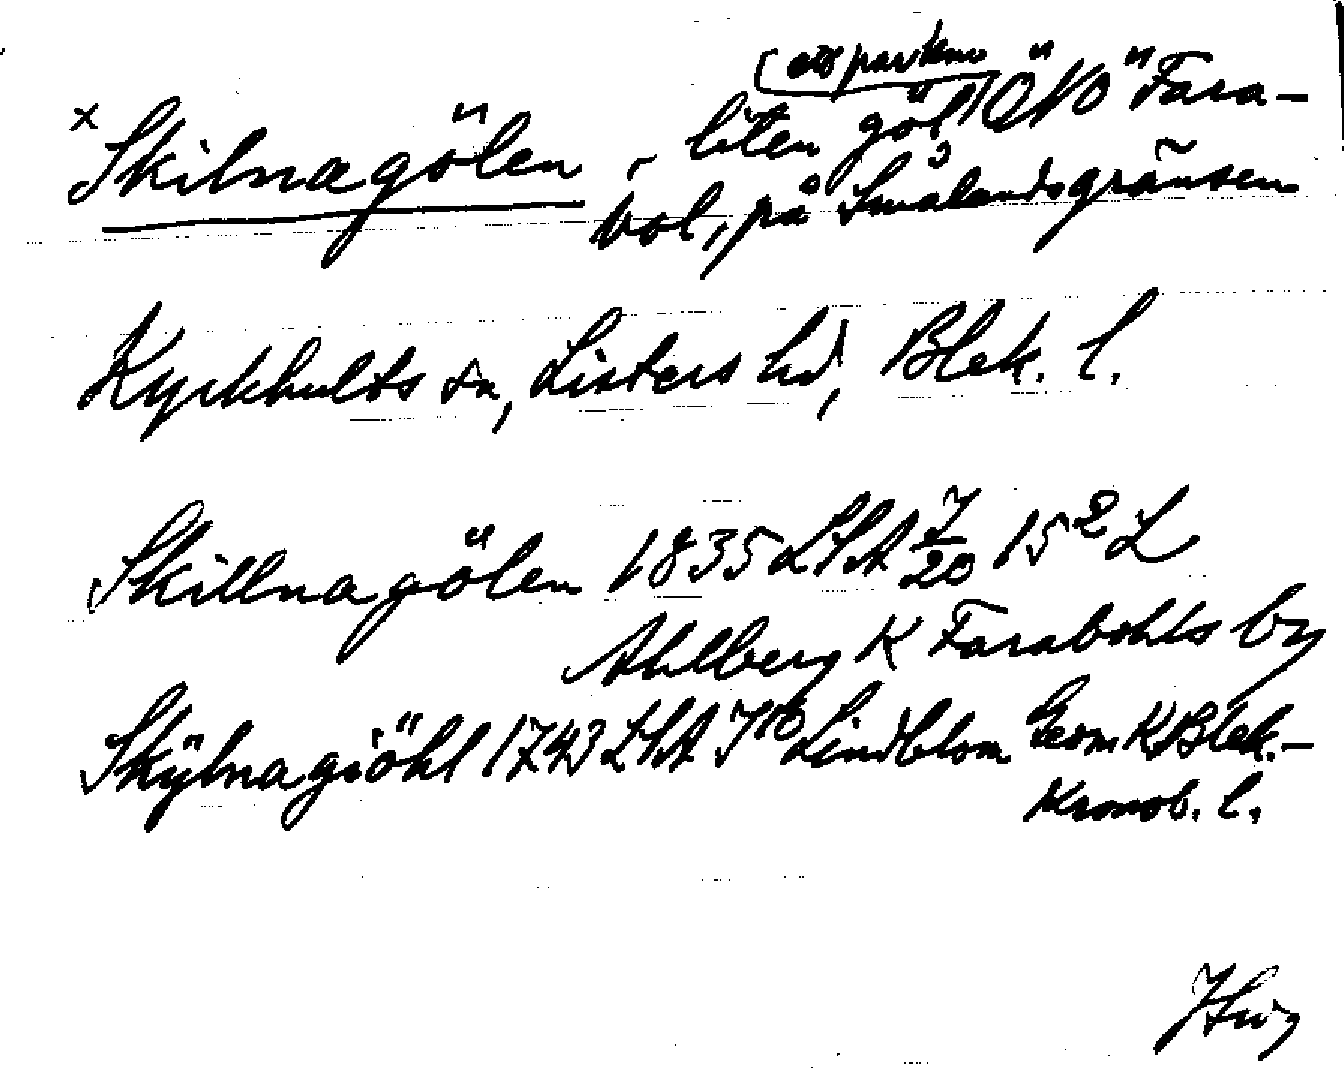 x Skilnagölen, liten göl ÖNÖ Fara-
bol, på Smålandsgränsen
Kyrkhults sn, Listers hd, Blek. l.
Skillnagölen 1835 LSA 7/20 15² L
Ahlberg K Farabohls by
Skÿlnagiöhl 1743 LSA J10 Lindblom Geom K Blek.-
Kronob. l.